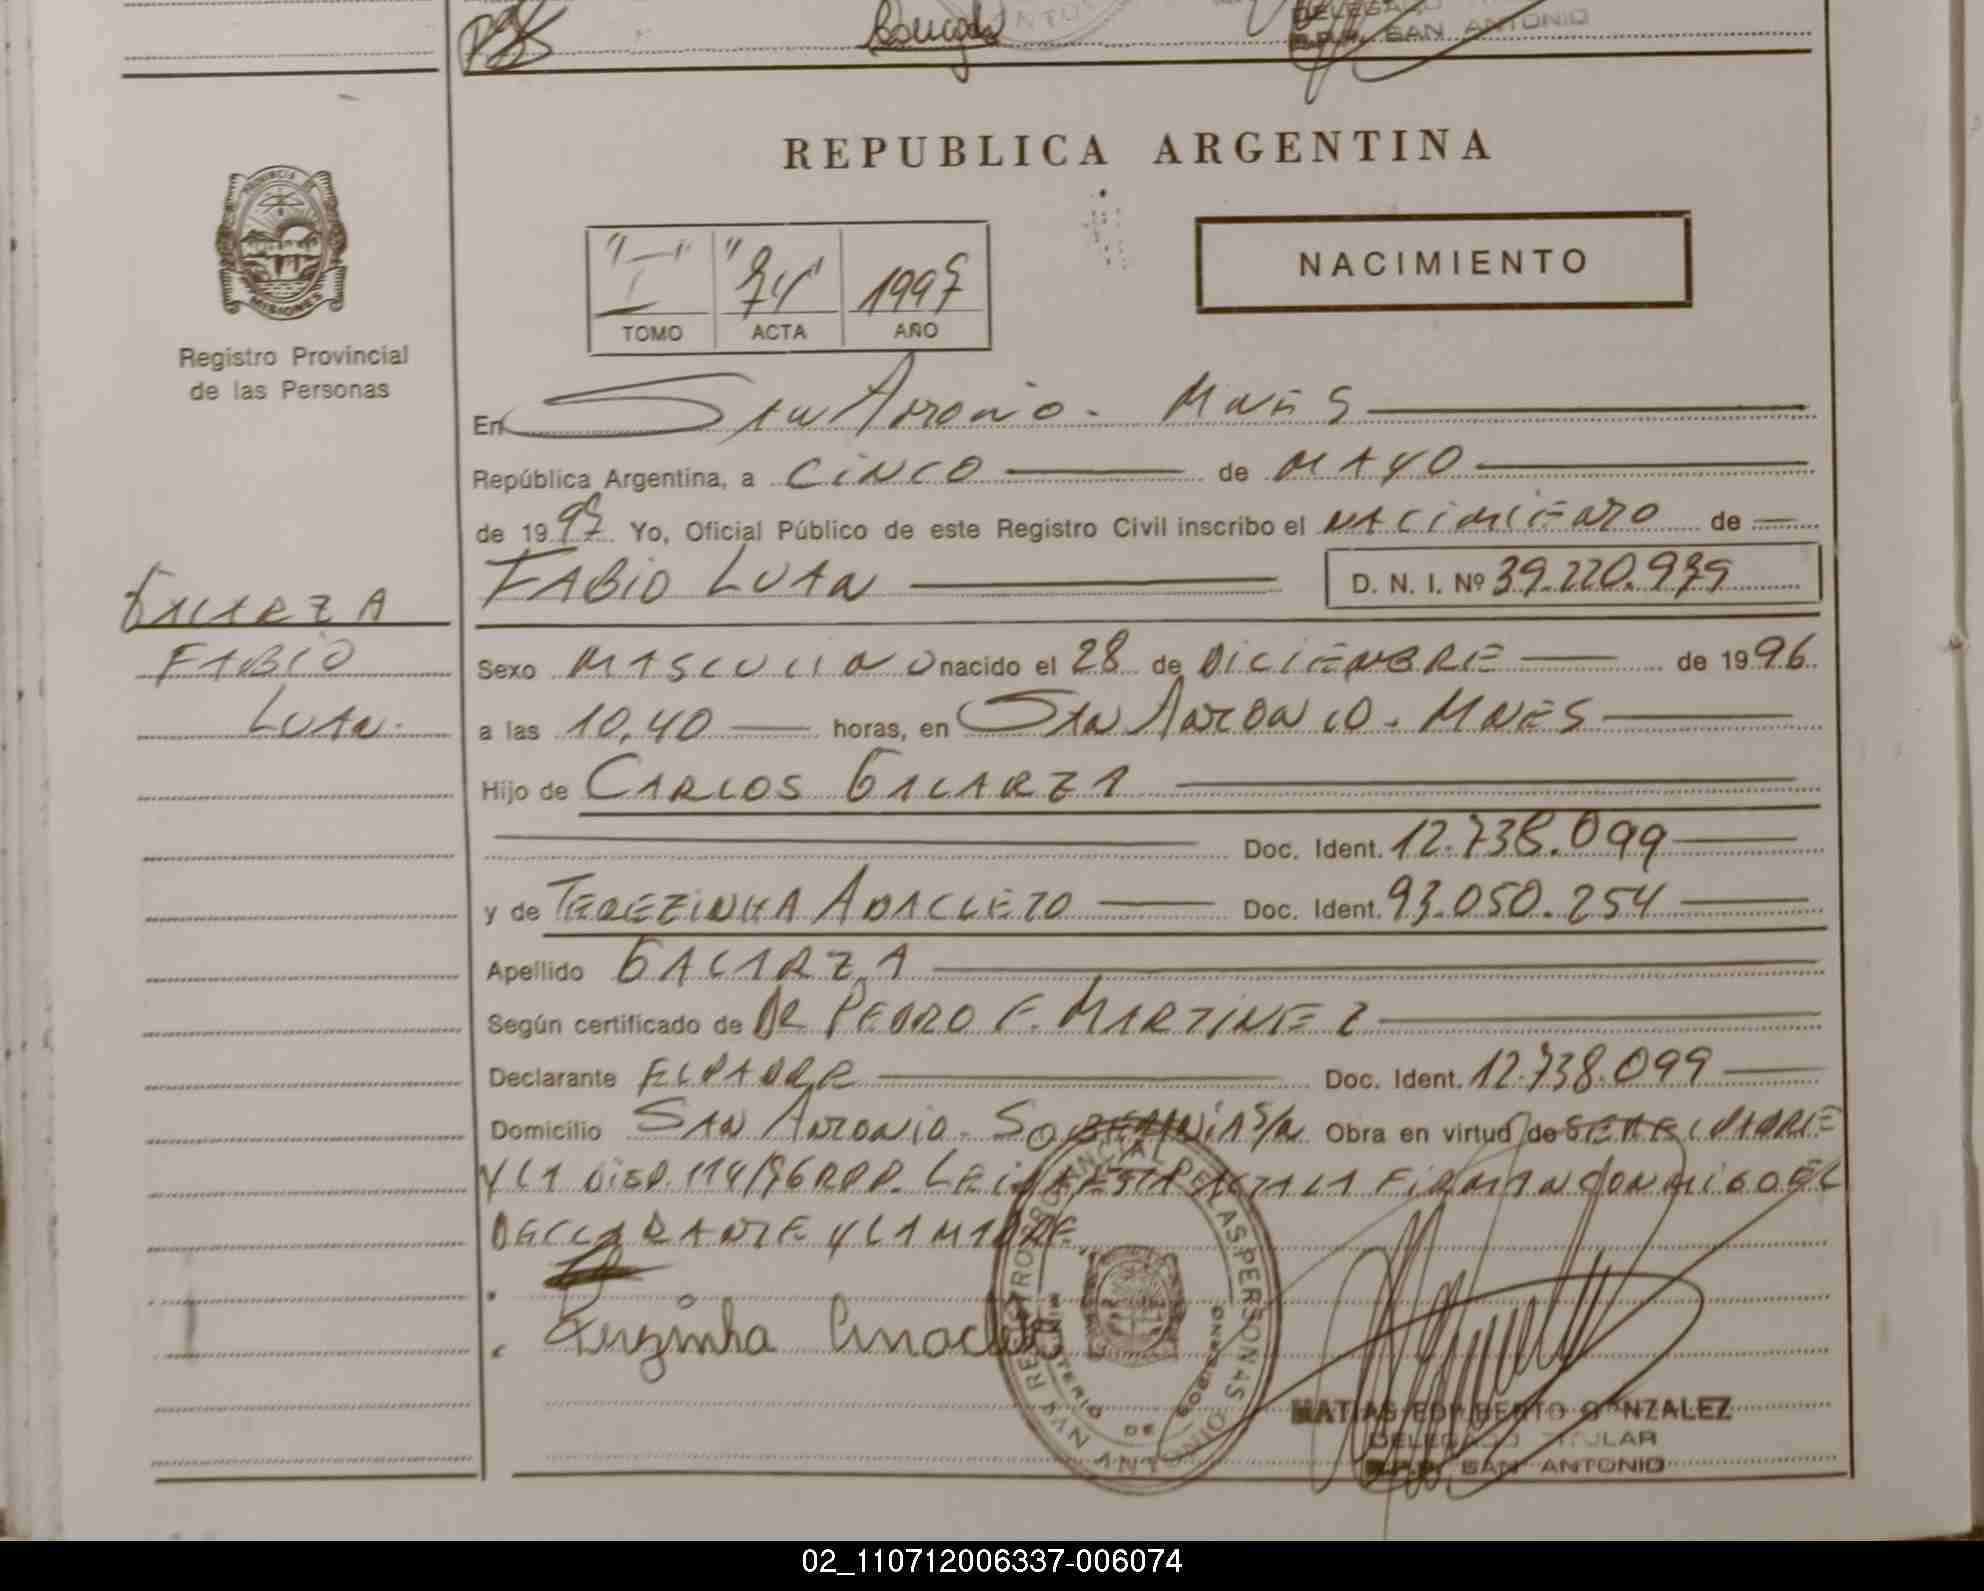 DELEGADO
R.P.P. SAN ANTONIO
REPUBLICA ARGENTINA
PROVINCIA DE
MISIONES
"I" "74" 1997
TOMO ACTA AÑO
NACIMIENTO
Registro Provincial
de las Personas
En San Antonio - Mnes
República Argentina, a CINCO de MAYO
de 1997 Yo, Oficial Público de este Registro Civil inscribo el NACIMIENTO de
FABIO LUAN D. N. I. Nº 39.220.939
GALARZA
FABIO
LUAN.
Sexo MASCULINO nacido el 28 de DICIEMBRE de 1996.
a las 10,40 horas, en SAN ANTONIO - MNES
Hijo de CARLOS GALARZA
Doc. Ident. 12.738.099
y de TEREZINHA ANACLETO Doc. Ident. 93.050.254
Apellido GALARZA
Según certificado de DR PEDRO F. MARTINEZ
Declarante EL PADRE Doc. Ident. 12.738.099
Domicilio SAN ANTONIO - S/N Obra en virtud de
Y LA DISP. 114/96 RPP. LEIDA ESTA ACTA LA FIRMAN CONMIGO EL
DECLARANTE Y LA MADRE.
REGISTRO PROVINCIAL DE LAS PERSONAS
MINISTERIO DE GOBIERNO
SAN ANTONIO
MATIAS EDILBERTO GONZALEZ
DELEGADO TITULAR
R.P.P. SAN ANTONIO
02_110712006337-006074